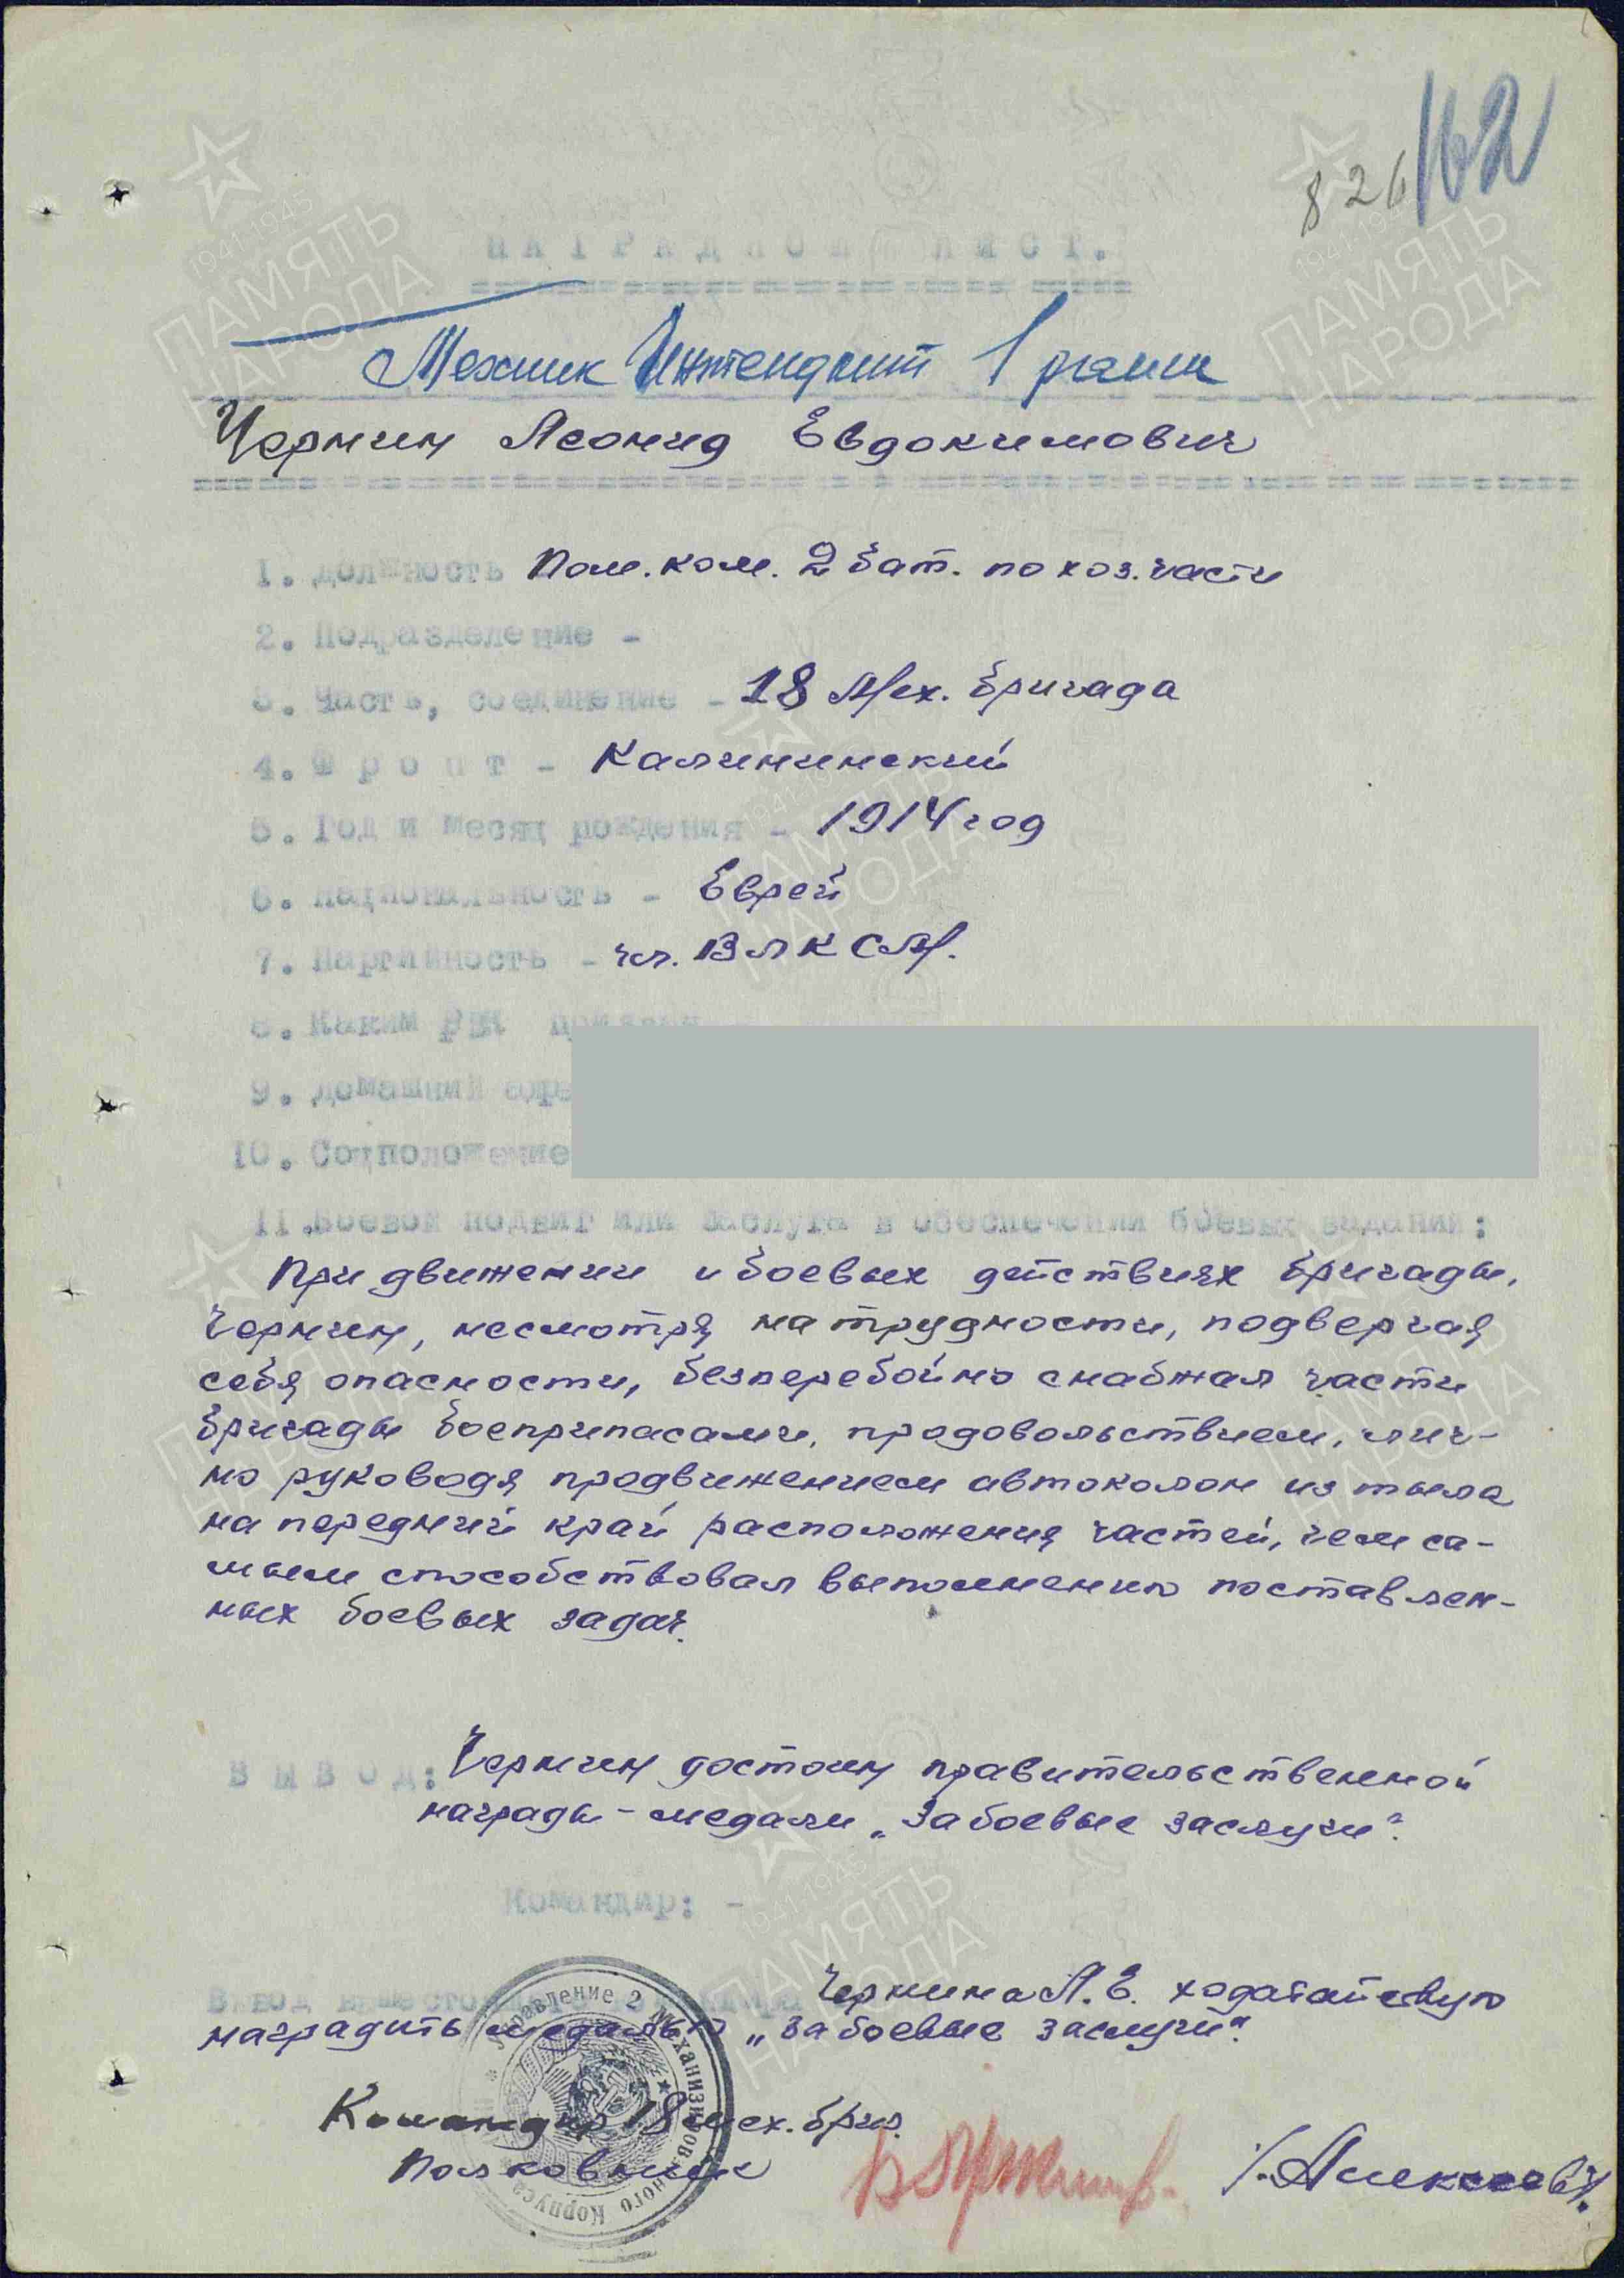 162
826
НАГРАДНОЙ ЛИСТ.
Техник Интендант 1 ранга
Чернин Леонид Евдокимович
1. Должность Пом. ком. 2 бат. по хоз. части
2. Подразделение -
3. Часть, соединение - 18 Мех. бригада
4. Фронт - Калининский
5. Год и месяц рождения - 1914 год
6. Национальность - Еврей
7. Партийность - чл. ВЛКСМ.
8. Каким РВК призван
9. Домашний адре
10. Соцположение
11. Боевой подвиг или заслуга в обеспечении боевых заданий:
При движении и боевых действиях бригады,
Чернин, несмотря на трудности, подвергая
себя опасности, безперебойно снабжал части
бригады боеприпасами, продовольствием, лич-
но руководя продвижением автоколон из тыла
на передний край расположения частей, чем са-
мым способствовал выполнению поставлен-
ных боевых задач.
ВЫВОД: Чернин достоин правительственной
награды - медали „За боевые заслуги".
Командир: -
Вывод вышестоящего Чернина Л. Е. ходатайствую
наградить медалью „За боевые заслуги".
Управление 2 Механизированного Корпуса
Командир 18 мех. бриг.
Полковник
ПАМЯТЬ НАРОДА
1941-1945